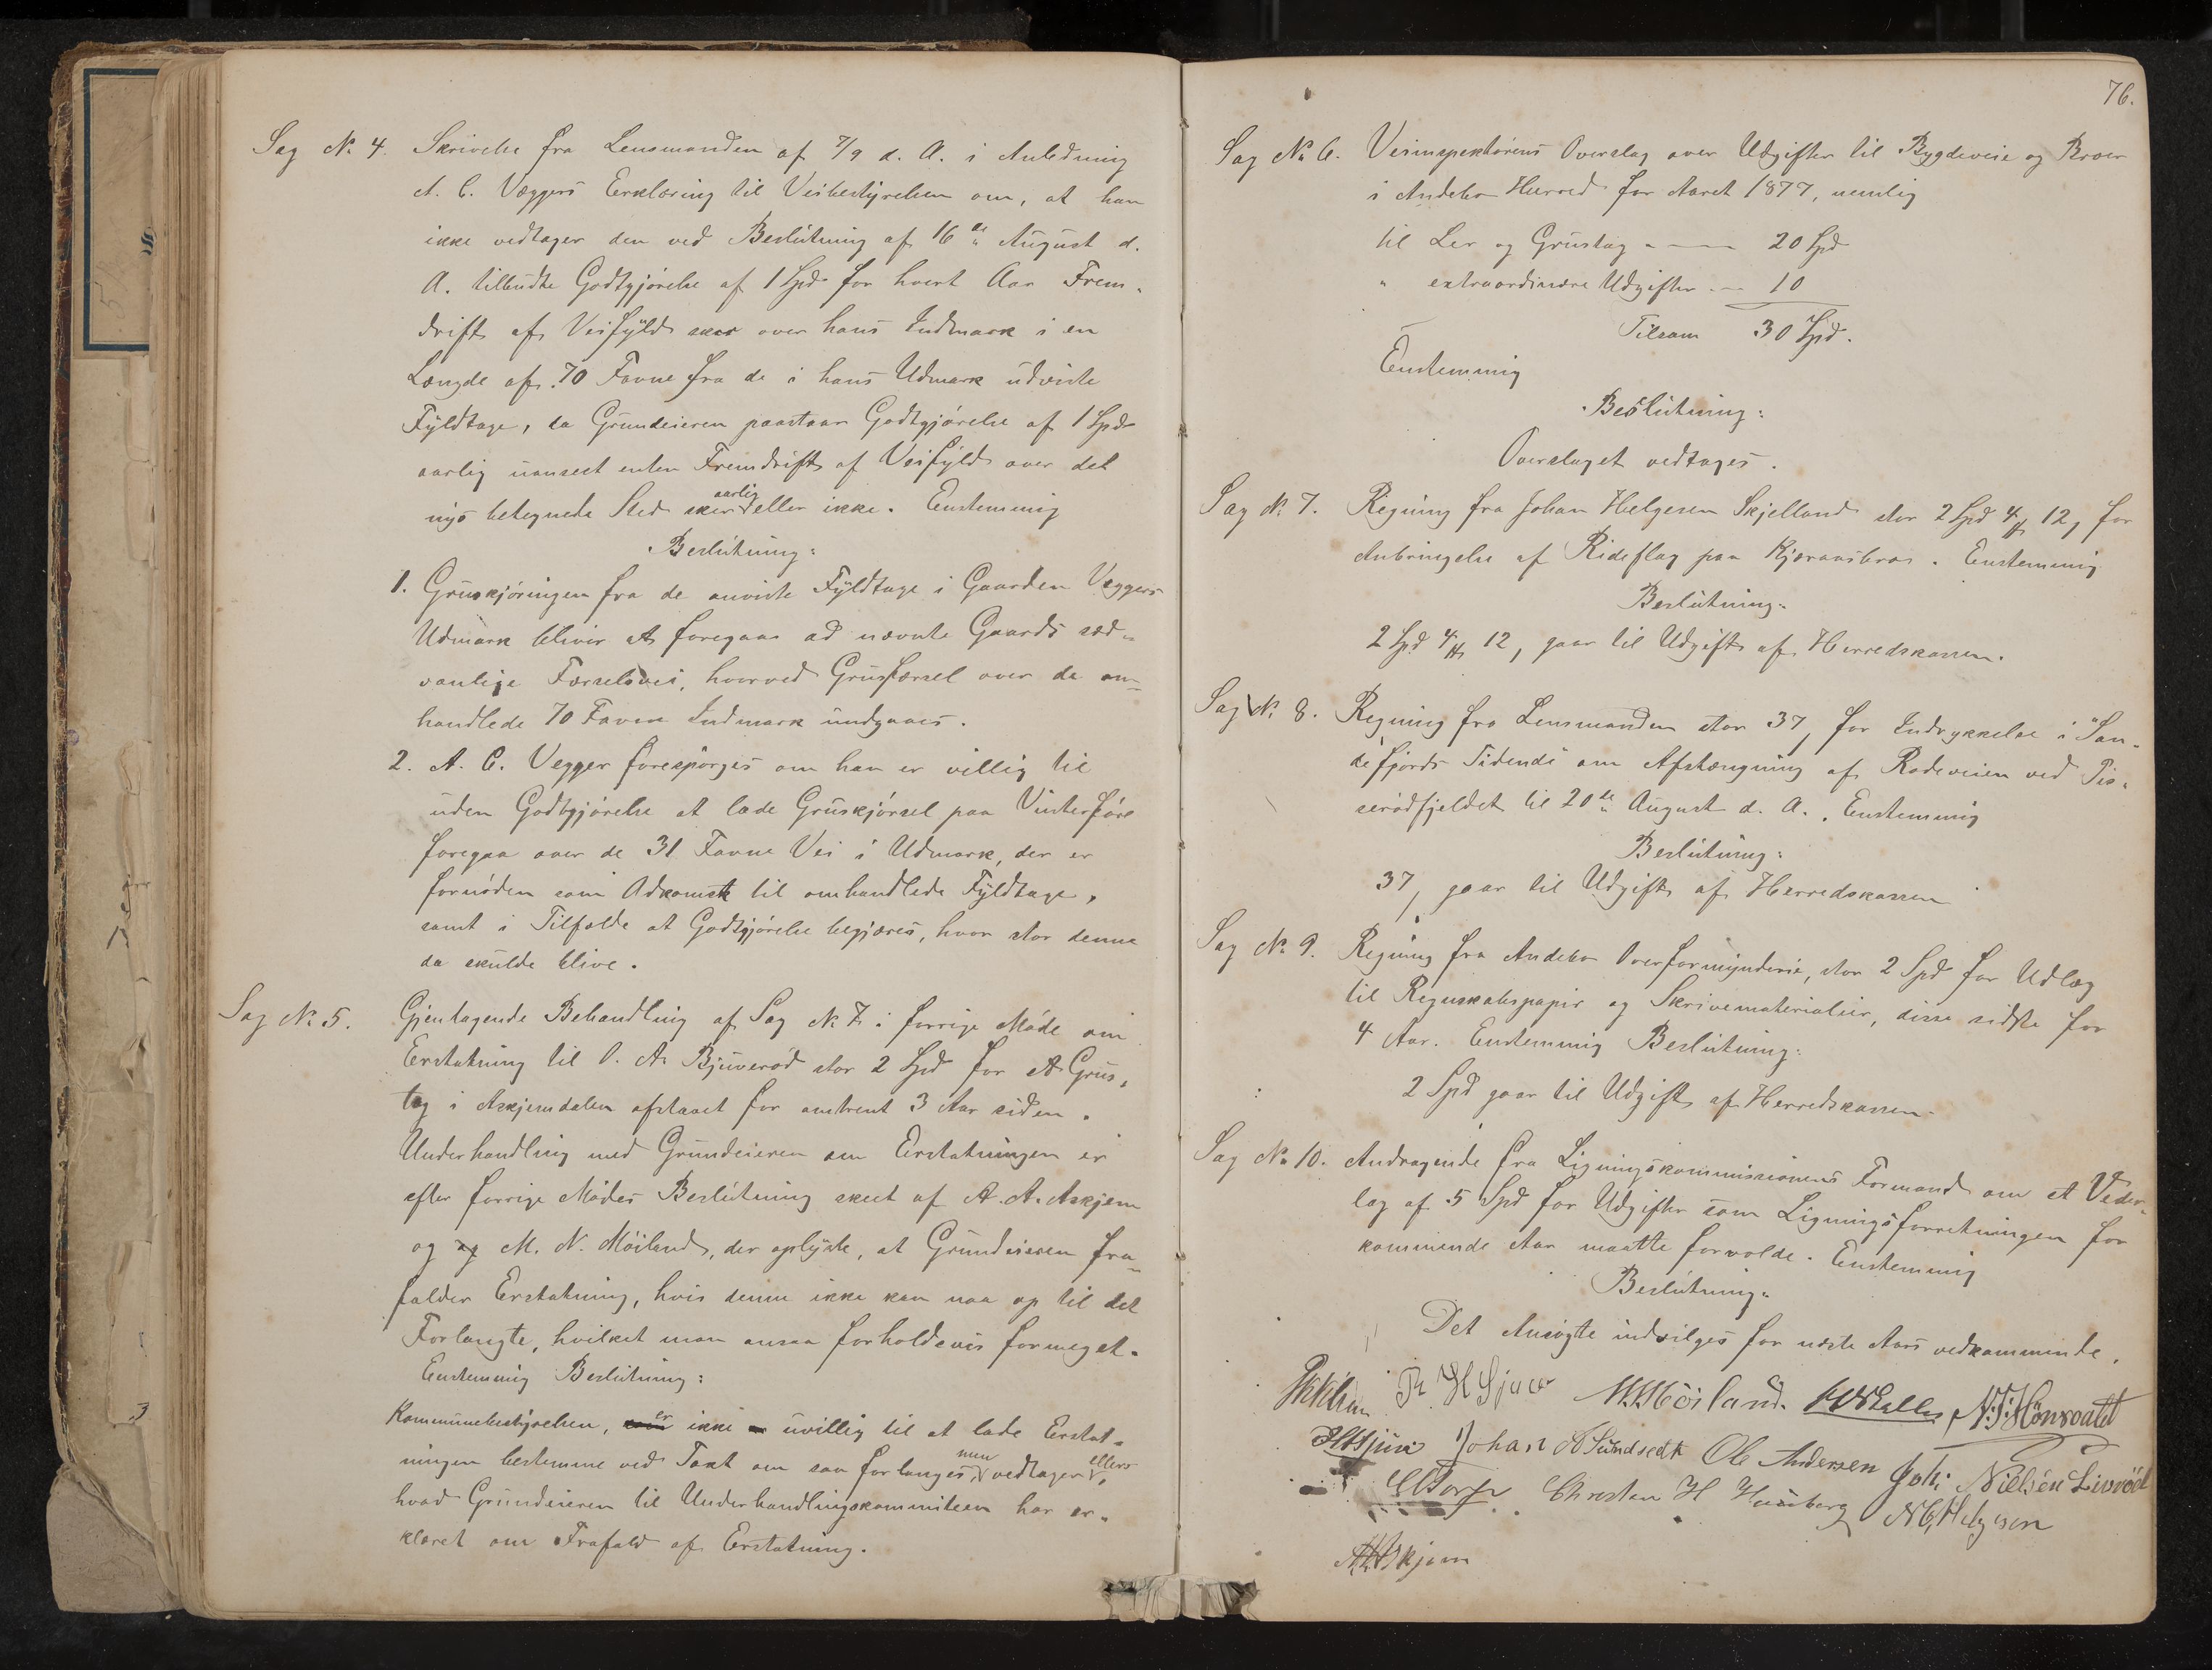 Sag No 4. Skrivelse fra Lensmanden af 7/9 d. A. i Anledning
A. C. Væggers Erklæring til Veibestyrelsen om, at han
ikke vedtager den ved Beslutning af 16de August d.
A. tilbudte Godtgjørelse af 1 Spd for hvert Aar Frem-
drift af Veifyld sker over hans Indmark i en
Længde af 70 Favne fra de i hans Udmark udviste
Fyldtage, da Grundeieren paastaar Godtgjørelse af 1 Spd
aarlig uanseet enten Fremdrift af Veifyld over det
nys betegnede Sted sker aarlig eller ikke. Enstemmig
Beslutning:
1. Gruskjøringen fra de anviste Fyldtage i Gaarden Væggers
Udmark bliver at foregaa ad nævnte Gaards sæd-
vanlige Færselsvei, hvorved Grusfærsel over de om-
handlede 70 Favne Indmark undgaaes.
2. A. C. Vegger forespørges om han er villig til
uden Godtgjørelse at lade Gruskjørsel paa Vinterføre
foregaa over de 31 Favne Vei i Udmark, der er
fornøden som Adkomst til omhandlede Fyldtage,
samt i Tilfælde at Godtgjørelse begjæres, hvor stor denne
da skulde blive.
Sag No 5. Gjentagende Behandling af Sag No 7 i forrige Møde om
Erstatning til O. A. Bjuerød stor 2 Spd for et Grus-
tag i Askjemdalen afstaaet for omtrent 3 Aar siden.
Underhandling med Grundeieren om Erstatningen er
efter forrige Mødes Beslutning skeet af A. A. Askjem
og og M. N. Møiland, der oplyste, at Grundeieren fra-
falder Erstatning, hvis denne ikke kan naa op til det
Forlangte, hvilket man ansaa forholdsvis formeget.
Enstemmig Beslutning:
Kommunebestyrelsen, er ikke uvillig til at lade Erstat-
ningen bestemme ved Taxt om saa forlanges, men vedtager ellers,
hvad Grundeieren til Underhandlingskommiteen har er-
klæret om Frafald af Erstatning.
76.
Sag No 6. Veiinspektørens Overslag over Udgifter til Bygdeveie og Broer
i Andebo Herred for Aaret 1877, nemlig
til Ler og Grustag - — 20 Spd
" extraordinære Udgifter - — 10
Tilsam 30 Spd.
Enstemmig
Beslutning:
Overslaget vedtages.
Sag No 7. Regning fra Johan Helgesen Skjelland stor 2 Spd 4 12, for
Anbringelse af Rideflag paa Kjæraasbroe. Enstemmig
Beslutning:
2 Spd 4 12, gaar til Udgift af Herredskassen.
Sag No 8. Regning fra Lensmanden stor 37, for Indrykkelse i "San-
defjords Tidende" om Afstængning af Rodeveien ved
serødfjeldet til 20de August d. A. Enstemmig
Beslutning:
37, gaar til Udgift af Herredskassen
Sag No 9. Regning fra Andebo Overformynderie, stor 2 Spd for Udlæg
til Regnskabspapir og Skrivematerialier, disse sidste for
4 Aar. Enstemmig Beslutning:
2 Spd gaar til Udgift af Herredskassen.
Sag No 10. Andragende fra Ligningskommissionens Formand om et Veder-
lag af 5 Spd for Udgifter som Ligningsforretningen for
kommende Aar maatte forvolde. Enstemmig
Beslutning:
Det Ansøgte indvilges for næste Aars vedkommende.
M. N. Möiland.
Johan A Sundsedt Ole Andersen Joh: Nielsen Livröd
Christen H Husøberg N C Helgesen
A. A. Askjem